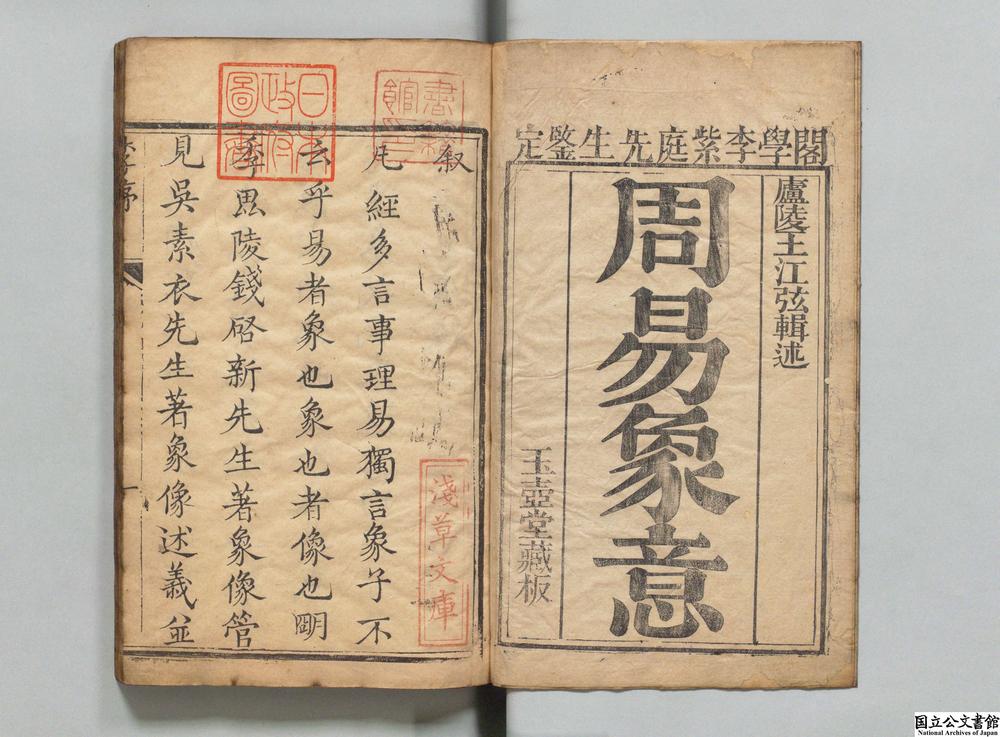 閣學李紫庭先生鑒定
盧陵王江弦輯述
周易象意
玉壺堂藏板
叙
凡經多言事理易獨言象子不
云乎易者象也象也者像也明
季毘陵錢啓新先生著象像管
見吳素衣先生著象像述義並
李序
一
日本
政府
圖書
淺草文庫
国立公文書館
National Archives of Japan